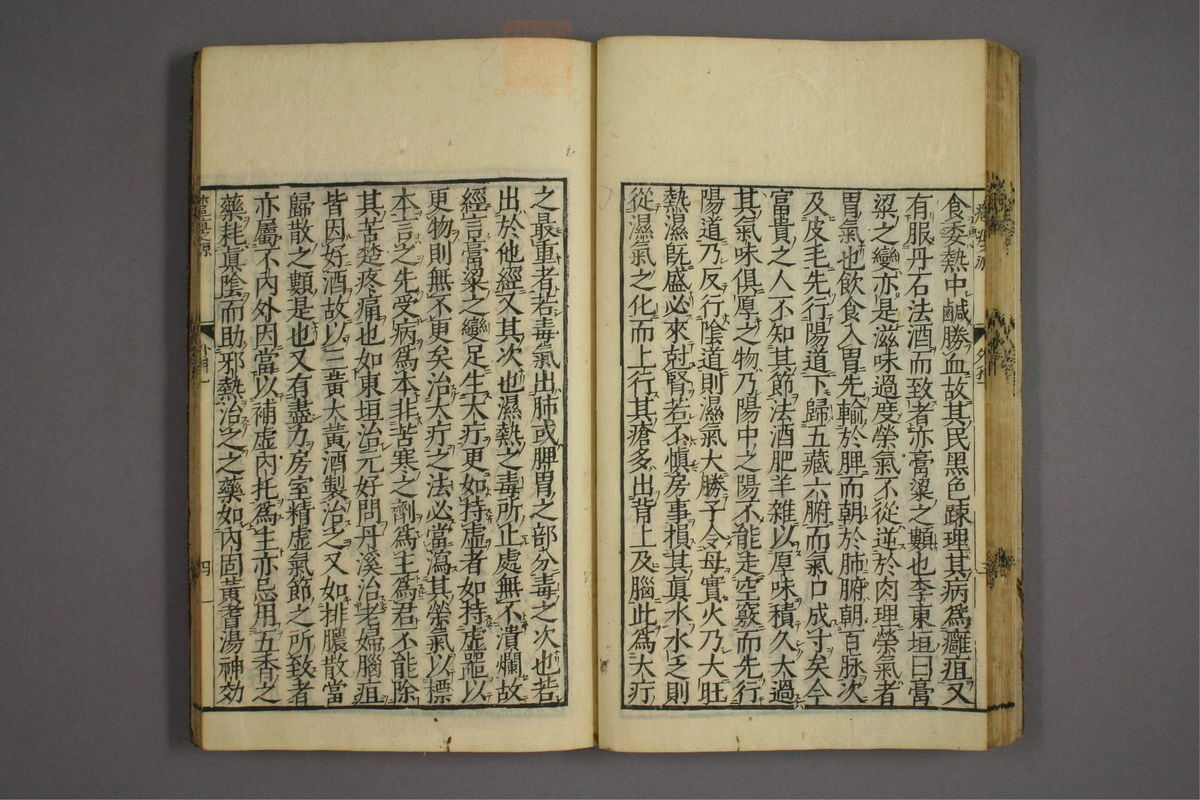 食委熱中鹹勝血故其民黑色踈理其病爲癰疽又
有服丹石法酒而致者亦膏粱之類也李東垣曰膏
粱之變亦是滋味過度榮氣不從逆於肉理榮氣者
胃氣也飲食入胃先輸於脾而朝於肺肺朝百脉次
及皮毛先行陽道下歸五藏六腑而氣口成寸矣今
富貴之人不知其節法酒肥羊雜以厚味積久太過
其氣味俱厚之物乃陽中之陽不能走空竅而先行
陽道乃反行陰道則濕氣大勝子令母實火乃大旺
熱濕旣盛必來尅腎若不愼房事損其眞水水乏則
從濕氣之化而上行其瘡多出背上及腦此爲大疔
之最重者若毒氣出肺或脾胃之部分毒之次也若
出於他經又其次也濕熱之毒所止處無不潰爛故
經言膏粱之變足生大疔更如持虛者如持虛器以
更物則無不更矣治大疔之法必當瀉其榮氣以標
本言之先受病爲本非苦寒之劑爲主爲君不能除
其苦楚疼痛也如東垣治元好問丹溪治老婦腦疽
皆因好酒故以三黃大黃酒製治之又如排膿散當
歸散之類是也又有盡力房室精虛氣節之所致者
亦屬不內外因當以補虛內托爲主亦忌用五香之
藥耗眞陰而助邪熱治之之藥如內固黃耆湯神効
四